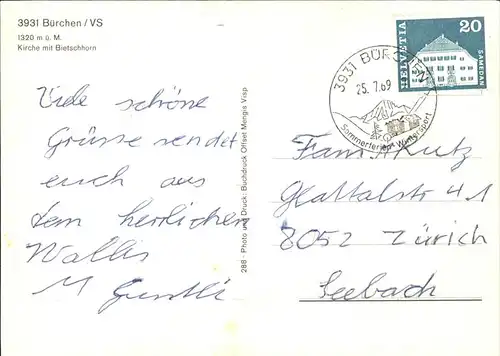 3931 Bürchen / VS
1320 m ü. M.
Kirche mit Bietschhorn
Viele schöne
Grüsse sendet
euch aus
dem herrlichen
Wallis
M
288 - Photo und Druck: Buchdruck Offset Mengis Visp
3931 BÜRCHEN
25.7.69
Sommerferien Wintersport
HELVETIA
20
SAMEDAN
Fam. Kutz
Glattalstr 41
8052 Zürich
Seebach